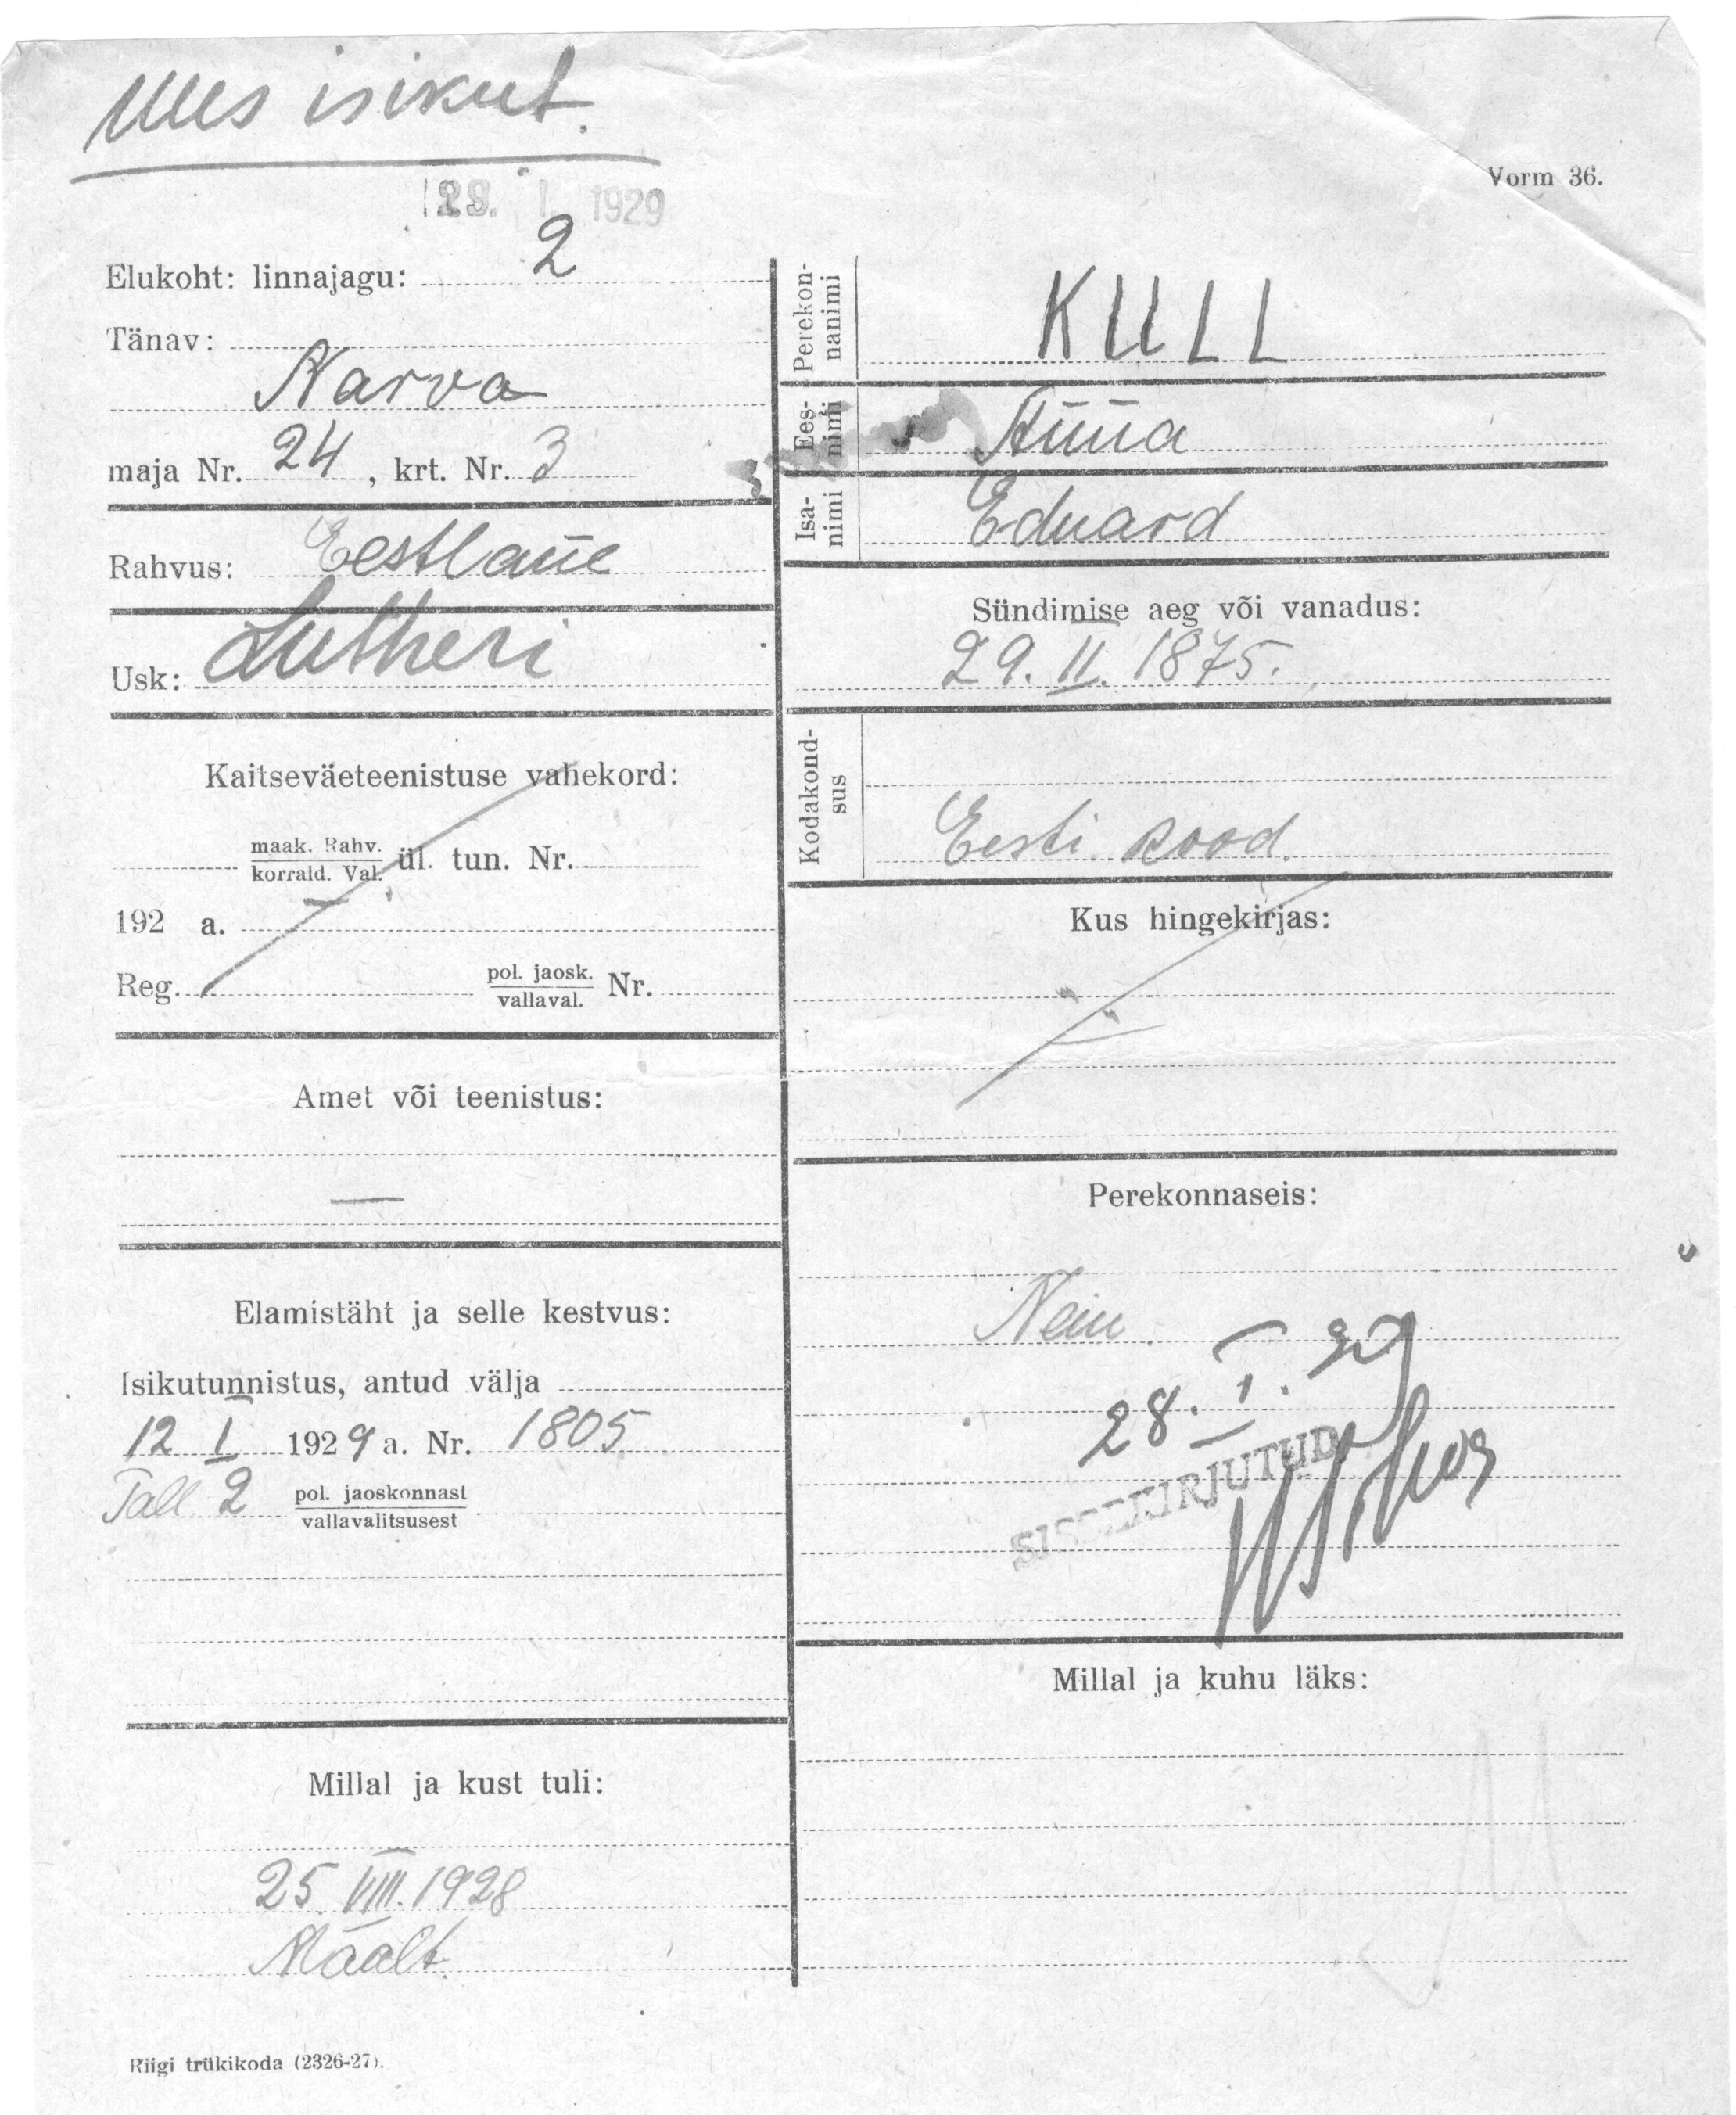 Uus isikut.
Vorm 36.
1929
Elukoht: linnajagu: 2
Tänav:
Narva
maja Nr. 24, krt. Nr. 3
Rahvus: Eestlane
Usk: Lutheri
Kaitseväeteenistuse vahekord:
maak. Rahv.
korrald. Val.
ül. tun. Nr.
192 a.
Reg. pol. jaosk.
vallaval. Nr.
Amet või teenistus:
—
Elamistäht ja selle kestvus:
Isikutunnistus, antud välja
12 I 1929 a. Nr. 1805
Tall. 2 pol. jaoskonnast
vallavalitsusest
Millal ja kust tuli:
25. VIII. 1928
Maalt.
Perekon-
nanimi
KULL
Ees-
nimi
Anna
Isa-
nimi
Eduard
Sündimise aeg või vanadus:
29. II. 1875.
Kodakond-
sus
Eesti
Kus hingekirjas:
Perekonnaseis:
28. I.
SISSEKIRJUTUD
Millal ja kuhu läks:
Riigi trükikoda (2326-27).